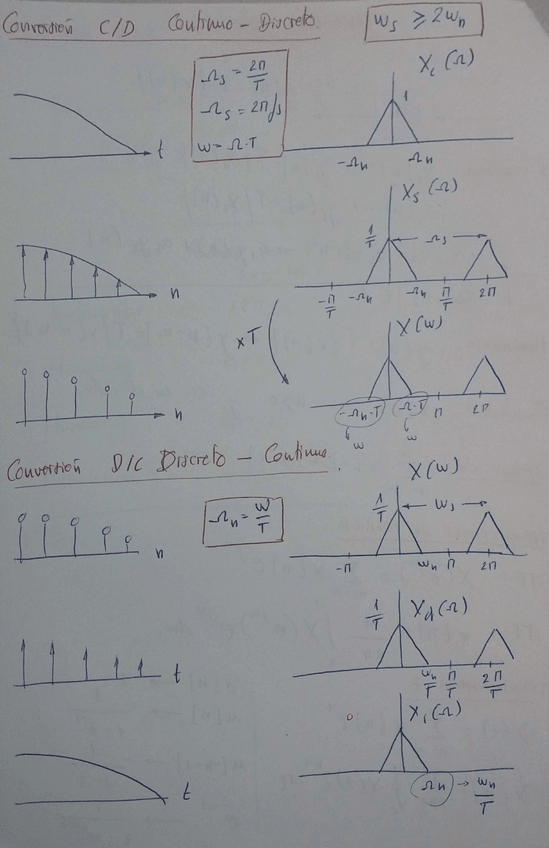 Conversión C/D Continuo - Discreto. ws ≥ 2wn
Ωs = 2π/T
Ωs = 2π/s
w = Ω·T
Xc(Ω)
1
t
-Ωn Ωn
Xs(Ω)
1/T Ωs
n
-π/T -Ωn Ωn π/T 2π
xT
X(w)
n
-Ωn·T Ω·T π 2π
w w
Conversión D/C Discreto - Continuo.
X(w)
Ωn = w/T
1/T ws
n
-π wn π 2π
Xd(Ω)
1/T
t
wn/T π/T 2π/T
X(Ω)
t
Ωn → wn/T